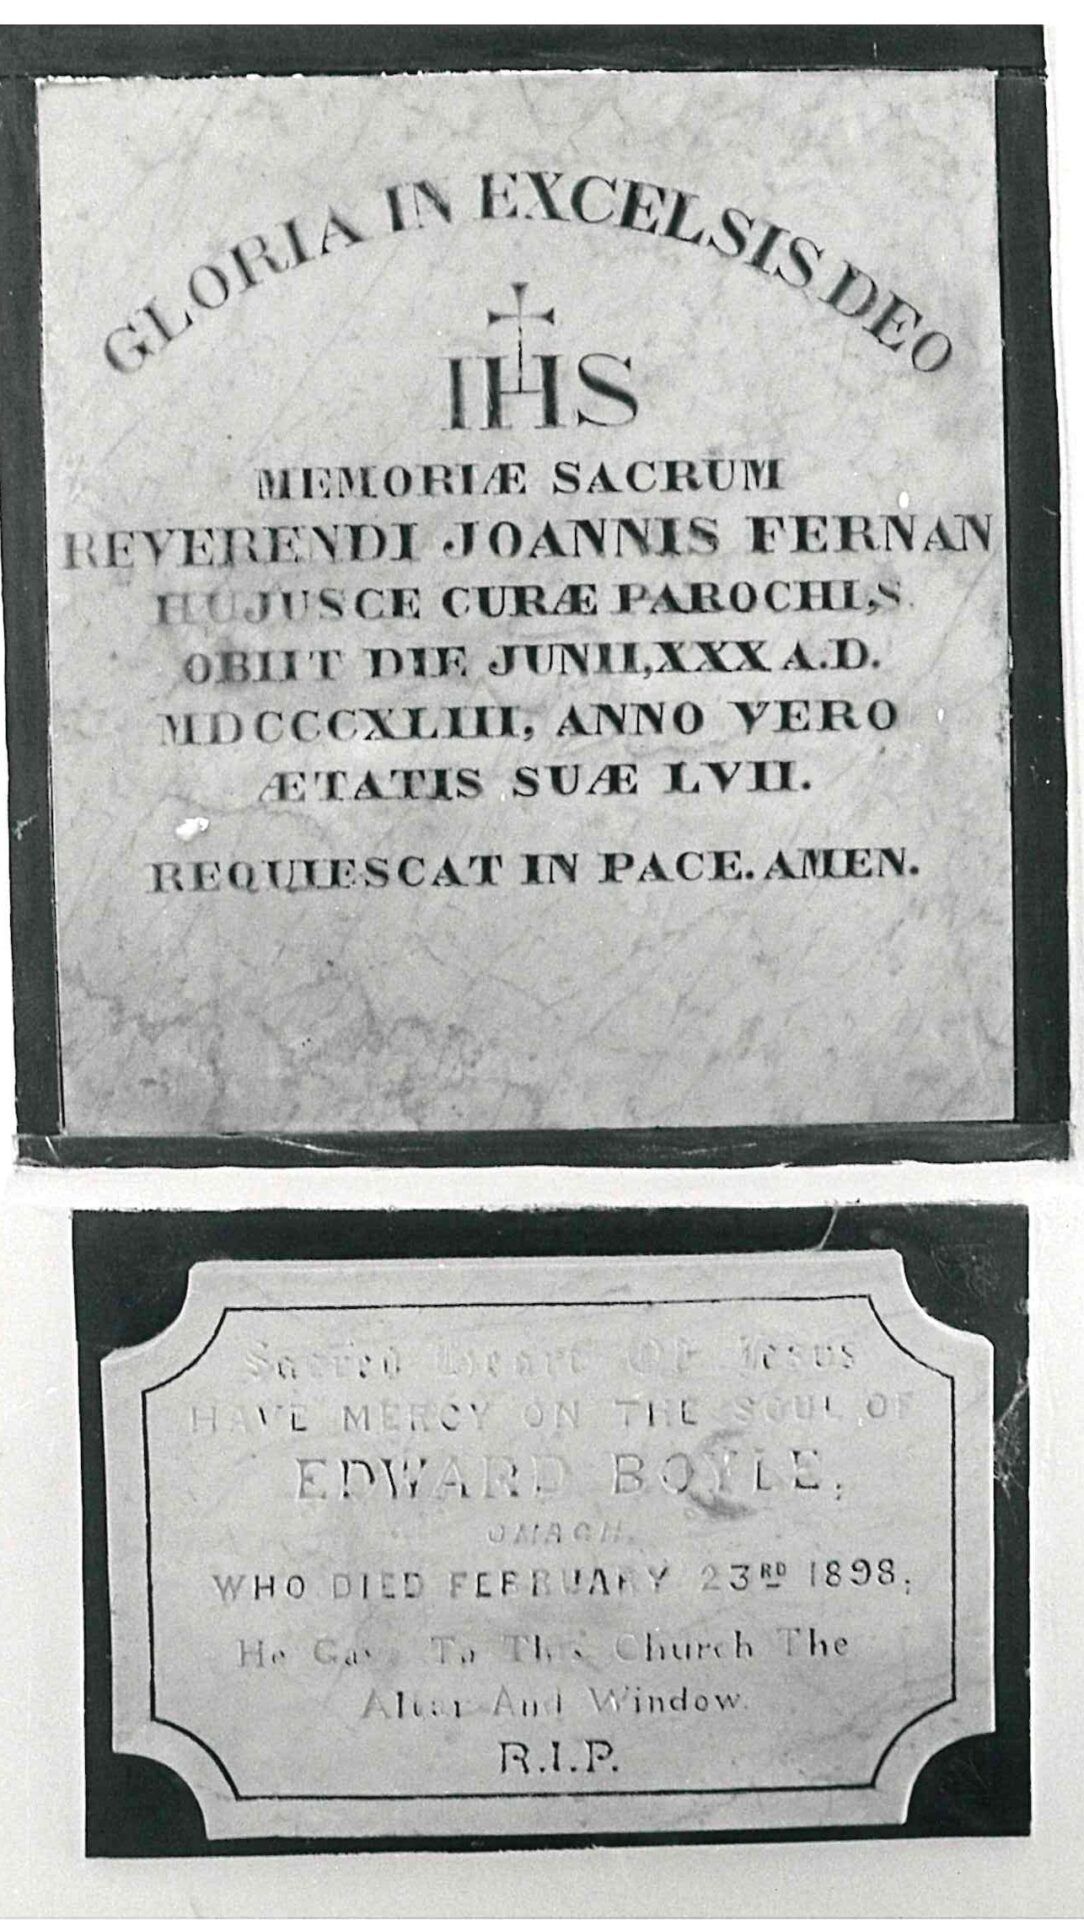 GLORIA IN EXCELSIS DEO
IHS
MEMORIÆ SACRUM
REVERENDI JOANNIS FERNAN
HUJUSCE CURÆ PAROCHI,S.
OBIIT DIE JUNII,XXX A.D.
MDCCCXLIII, ANNO VERO
ÆTATIS SUÆ LVII.
REQUIESCAT IN PACE. AMEN.
Sacred Heart Of Jesus
HAVE MERCY ON THE SOUL OF
EDWARD BOYLE,
OMAGH.
WHO DIED FEBRUARY 23RD 1898,
He Gave To This Church The
Altar And Window.
R.I.P.